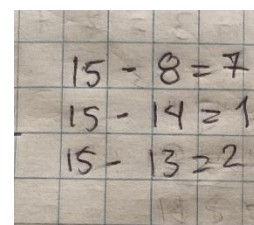 15 - 8 = 7
15 - 14 = 1
15 - 13 = 2